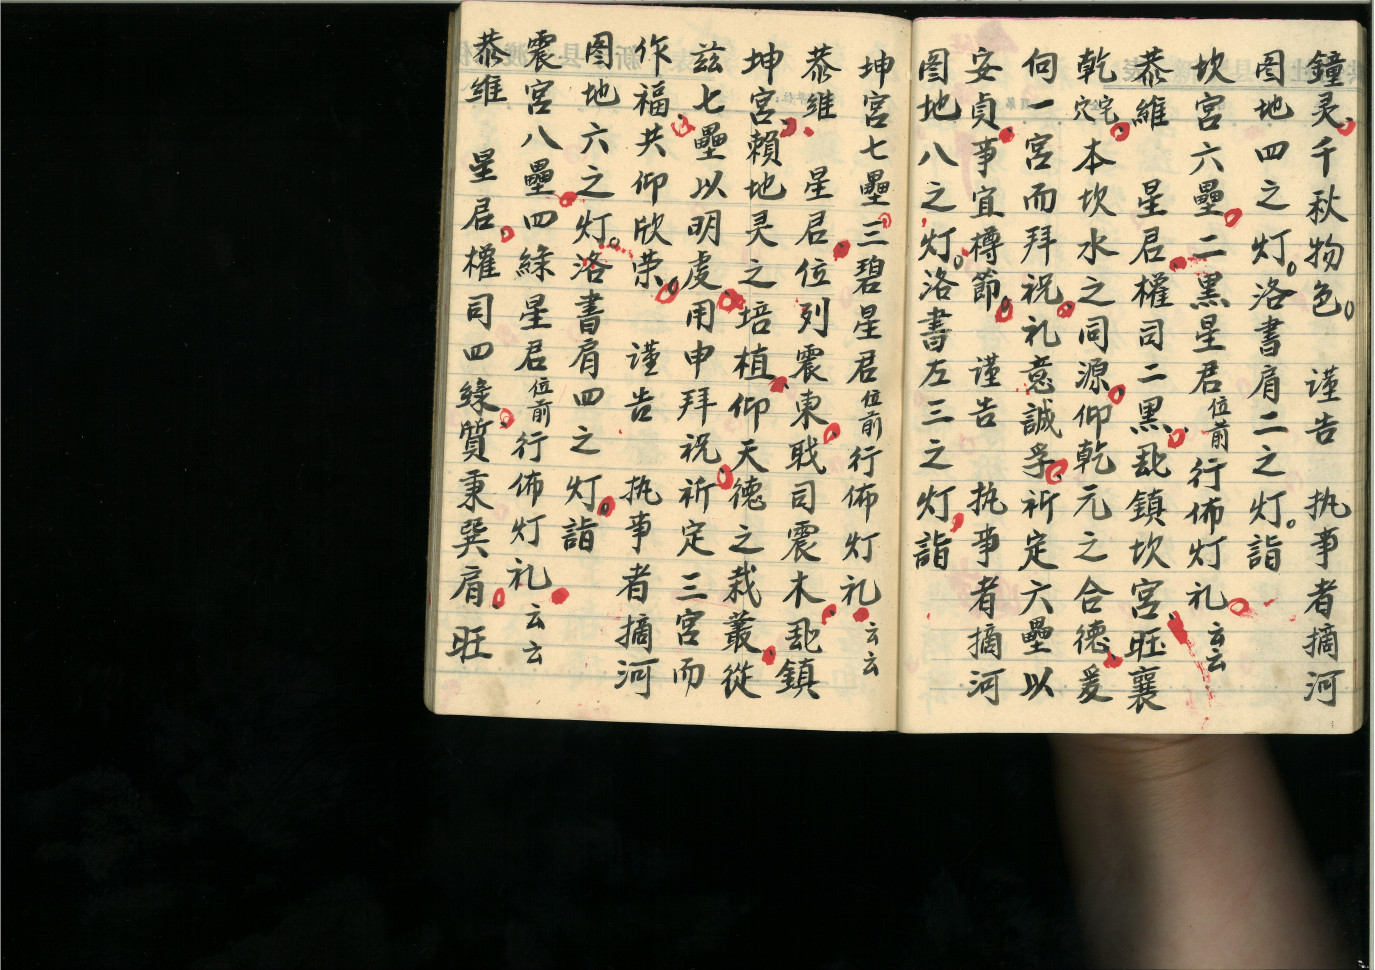 鐘灵千秋物色。 谨告 执事者摘河
图地四之灯。洛書肩二之灯。詣
坎宫六壘二黑星君位前行佈灯礼云云
恭維 星君權司二黑乱鎮坎宫旺襄
乾宅穴本坎水之同源仰乾元之合德爰
向一宫而拜祝礼意誠孚祈定六壘以
安貞事宜樽節。 谨告 执事者摘河
图地八之灯。洛書左三之灯詣
坤宫七壘三碧星君位前行佈灯礼云云
恭维 星君位列震東戢司震木乱鎮
坤宫賴地灵之培植仰天德之栽叢従
兹七壘以明虔用申拜祝祈定三宫而
作福共仰欣荣。 谨告 执事者摘河
图地六之灯。洛書肩四之灯。詣
震宫八壘四綠星君位前行佈灯礼云云
恭维 星君權司四綠質秉巽肩旺